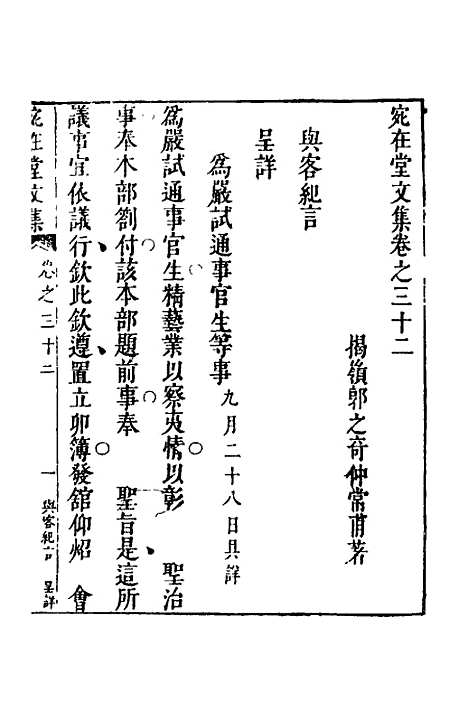 宛在堂文集卷之三十二
揭嶺郭之奇仲常甫著
與客紀言
呈詳
為嚴試通事官生等事九月二十八日具詳
為嚴試通事官生精藝業以察夷情以彰　聖治
事奉本部劄付該本部題前事奉　聖旨是這所
議事宜依議行欽此欽遵置立卯簿發舘仰炤　會
宛在堂文集　卷之三十二　一　與客紀言　呈詳